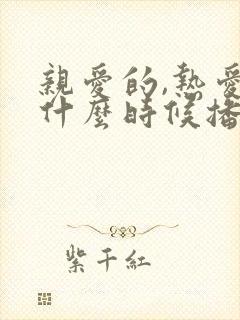 親愛的,熱愛
什麼時候播
紫千紅